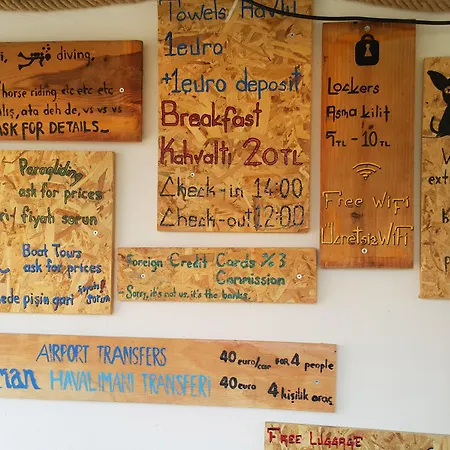 diving,
horse riding etc etc etc
ata deh de, vs vs vs
ASK FOR DETAILS
Paragliding
ask for prices
fiyatı sorun
Boat Tours
ask for prices
Towels Havlu
1euro
+1euro deposit
Breakfast
Kahvaltı 20TL
Check-in 14:00
Check-out 12:00
Lockers
Asma kilit
5TL - 10TL
Free WiFi
Ücretsiz WiFi
Foreign Credit Cards % 3
Commission
- Sorry, it's not us, it's the banks.
AIRPORT TRANSFERS 40 euro/car FOR 4 people
HAVALIMANI TRANSFERİ 40euro 4 kişilik araç
FREE LUGGAGE